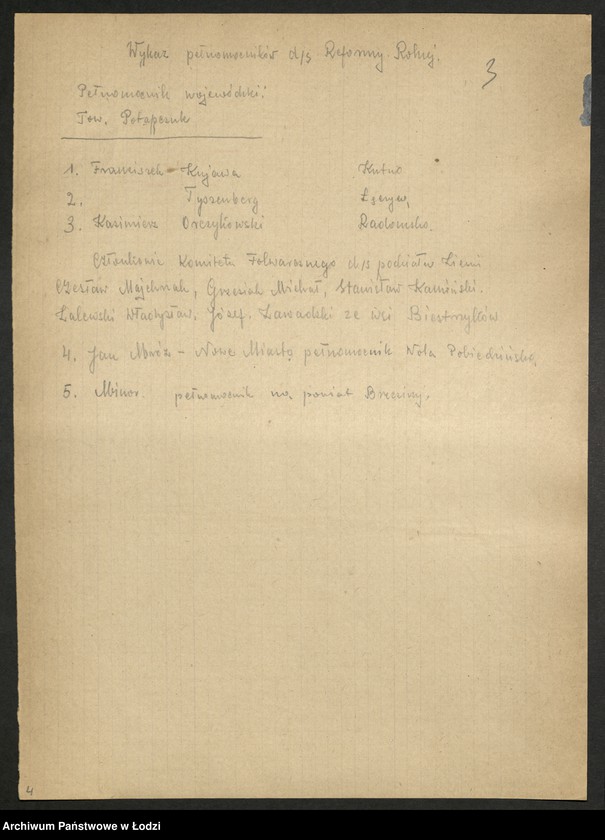 Wykaz pełnomocników d/s Reformy Rolnej.
3
Pełnomocnik wojewódzki:
Tow. Potapczuk
1. Franciszek Kujawa Kutno
2. Tyszenberg
3. Kazimierz Orczykowski Radomsko.
Członkowie Komitetu Folwarcznego d/s podziału Ziemi
Czesław Majchrzak, Grzesiak Michał, Stanisław Kamiński.
Zalewski Władysław, Józef Zawadzki ze wsi Biestrzyków
4. Jan Mróz - Nowe Miasto pełnomocnik Wola Pobiedzińska,
5. Minor. pełnomocnik na powiat Brzeziny.
4
Archiwum Państwowe w Łodzi